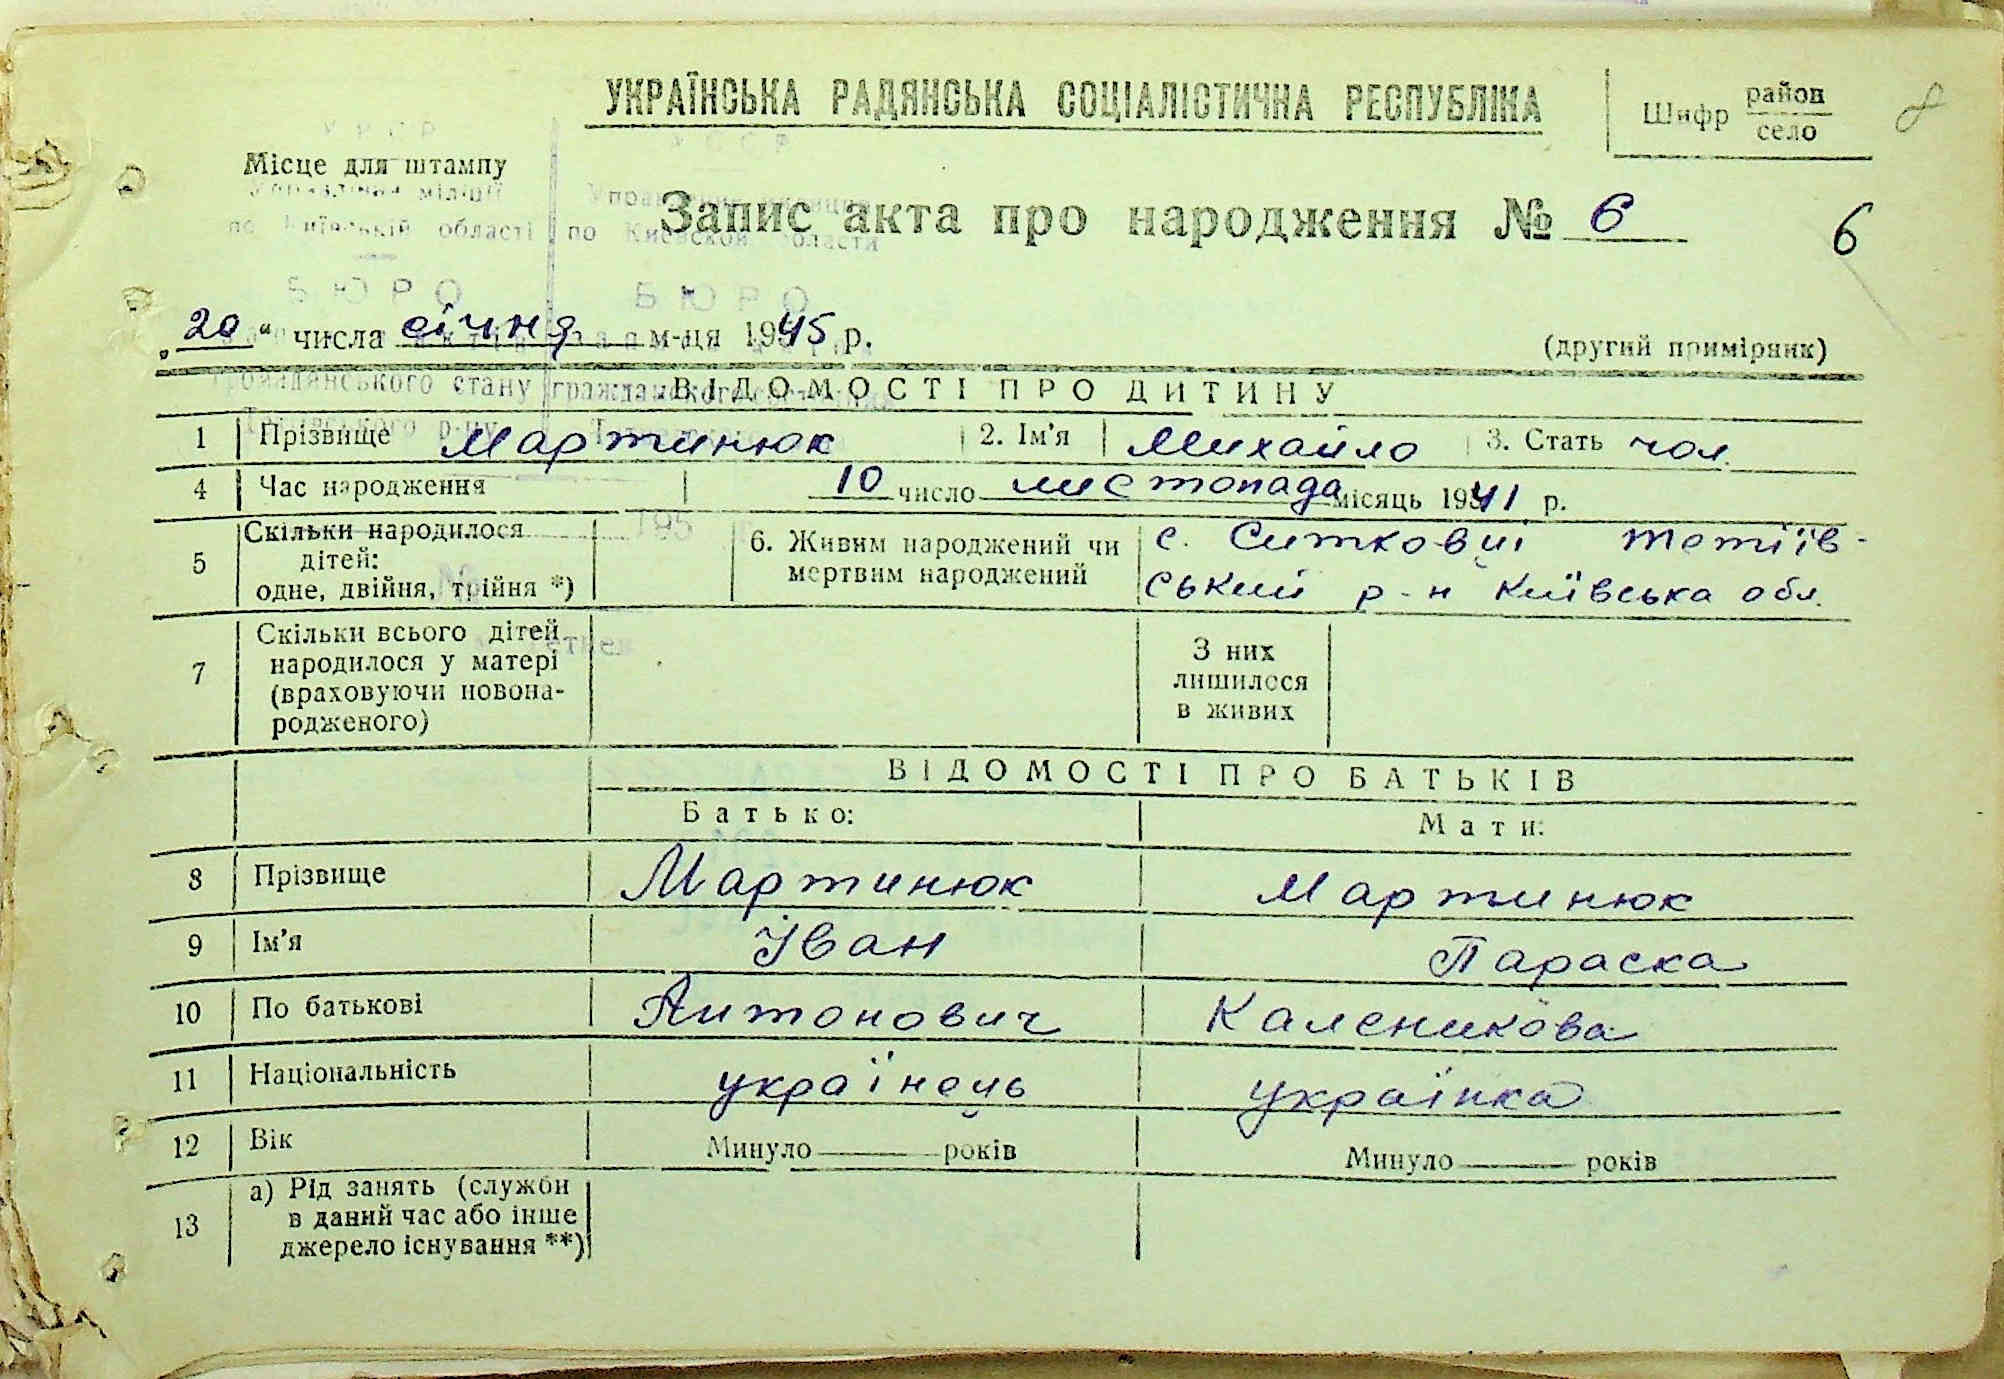 УКРАЇНСЬКА РАДЯНСЬКА СОЦІАЛІСТИЧНА РЕСПУБЛІКА
Шифр район
село
8
Місце для штампу
УРСР
Управління міліції
по Київській області по Киевской области
БЮРО БЮРО
Запис акта про народження № 6
6
„20“ числа січня м-ця 1945 р.
(другий примірник)
громадянського стану гражданского
ВІДОМОСТІ ПРО ДИТИНУ
1 Прізвище Мартинюк 2. Ім'я Михайло 3. Стать чол.
4 Час народження 10 число листопада місяць 1941 р.
195
5 Скільки народилося
дітей:
одне, двійня, трійня *)
6. Живим народжений чи
мертвим народжений
с. Ситковці Тетіїв-
ський р-н Київська обл.
7 Скільки всього дітей
народилося у матері
(враховуючи новона-
родженого)
З них
лишилося
в живих
ВІДОМОСТІ ПРО БАТЬКІВ
Батько: Мати:
8 Прізвище Мартинюк Мартинюк
9 Ім'я Іван Параска
10 По батькові Антонович Каленикова
11 Національність українець українка
12 Вік Минуло років Минуло років
13 а) Рід занять (служби
в даний час або інше
джерело існування **)